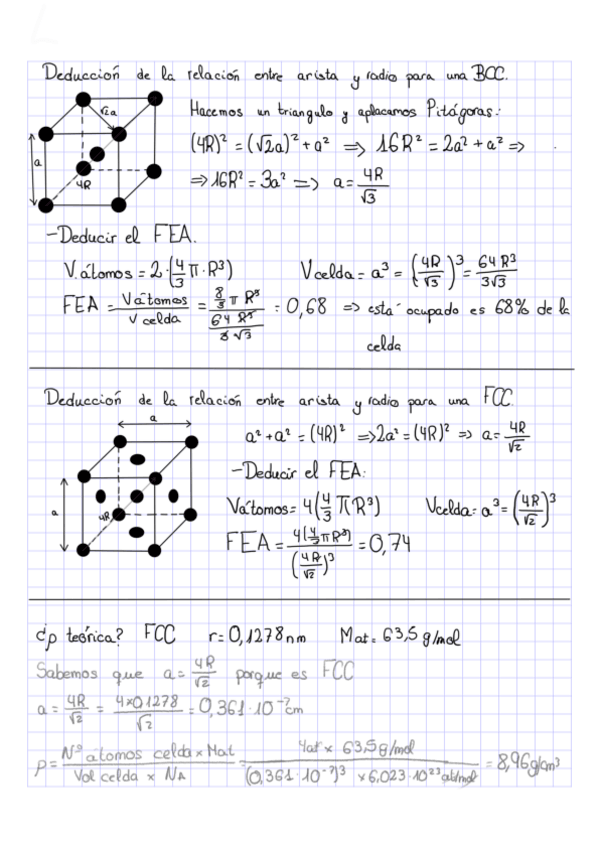 Deducción de la relación entre arista y radio para una BCC.
√2a
a
4R
Hacemos un triangulo y aplacamos Pitágoras:
(4R)² = (√2a)² + a² ⇒ 16R² = 2a² + a² ⇒
⇒ 16R² = 3a² ⇒ a = 4R/√3
- Deducir el FEA.
V.átomos = 2·(4/3 π·R³) Vcelda = a³ = (4R/√3)³ = 64R³/3√3
FEA = Vátomos/V celda = (8/3 π R³)/(64 R³/3√3) = 0,68 ⇒ está ocupado es 68% de la
celda
Deducción de la relación entre arista y radio para una FCC.
a
a
4R
a² + a² = (4R)² ⇒ 2a² = (4R)² ⇒ a = 4R/√2
- Deducir el FEA:
Vátomos = 4(4/3 π R³) Vcelda = a³ = (4R/√2)³
FEA = 4(4/3 π R³)/(4R/√2)³ = 0,74
¿ρ teórica? FCC r = 0,1278 nm Mat = 63,5 g/mol
Sabemos que a = 4R/√2 porque es FCC
a = 4R/√2 = 4×0.1278/√2 = 0,361·10⁻⁷ cm
ρ = Nº átomos celda × Mat/Vol celda × NA = 4at × 63,5g/mol/(0,361·10⁻⁷)³ × 6,023·10²³ at/mol = 8,96g/cm³